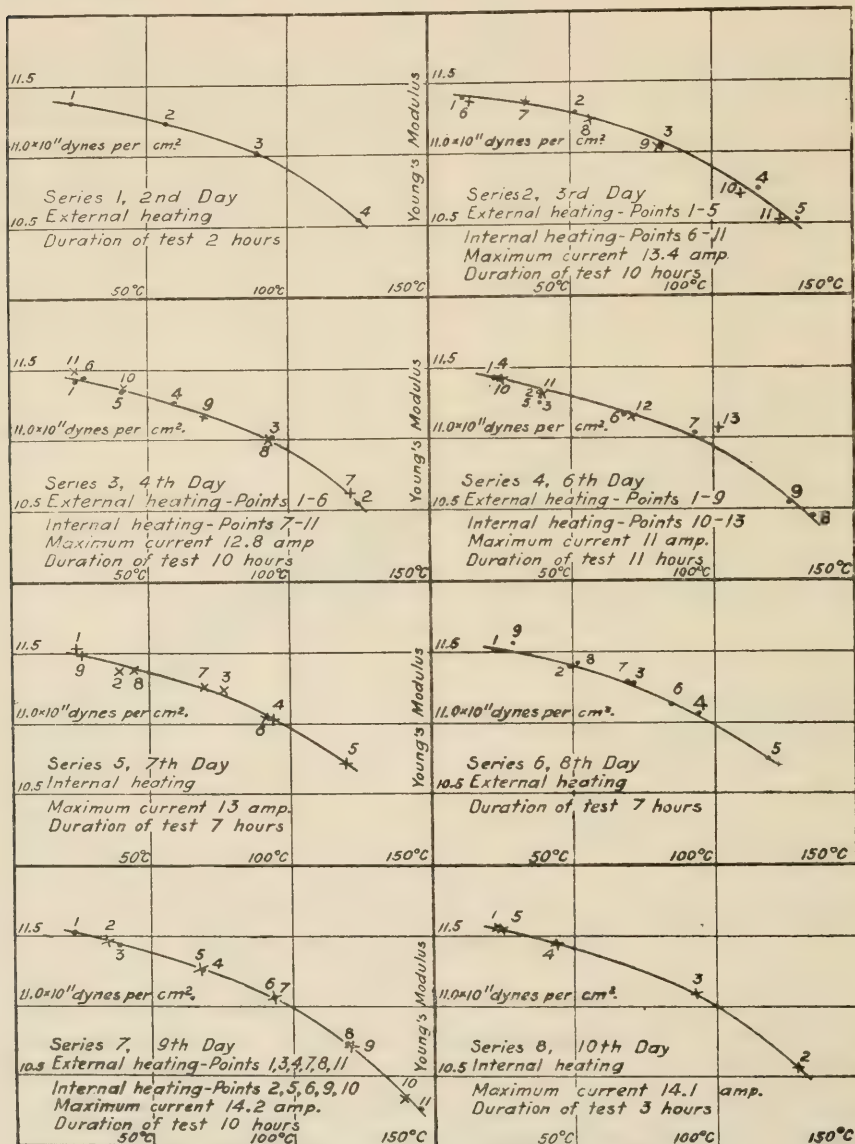 11.5
1
2
3
4
11.0×10¹¹ dynes per cm².
Series 1, 2nd Day
External heating
10.5
Duration of test 2 hours
50°C
100°C
150°C
Young's Modulus
11.5
1 6
7
2
8
3
9
4
10
5
11
11.0×10¹¹ dynes per cm².
Series 2, 3rd Day
10.5 External heating - Points 1-5
Internal heating - Points 6-11
Maximum current 13.4 amp.
Duration of test 10 hours
50°C
100°C
150°C
11.5
11
6
1
10
5
4
9
3
8
7
2
11.0×10¹¹ dynes per cm².
Series 3, 4th Day
10.5 External heating - Points 1-6
Internal heating - Points 7-11
Maximum current 12.8 amp
Duration of test 10 hours
50°C
100°C
150°C
Young's Modulus
11.5
1 4
10
11
2
5 3
6
12
7
13
9
8
11.0×10¹¹ dynes per cm².
Series 4, 6th Day
10.5 External heating - Points 1-9
Internal heating - Points 10-13
Maximum current 11 amp.
Duration of test 11 hours
50°C
100°C
150°C
11.5
1
9
2 8
7 3
4
6
5
11.0×10¹¹ dynes per cm².
Series 5, 7th Day
10.5 Internal heating
Maximum current 13 amp.
Duration of test 7 hours
50°C
100°C
150°C
Young's Modulus
11.5
1
9
2
8
7 3
6
4
5
11.0×10¹¹ dynes per cm².
Series 6, 8th Day
10.5 External heating
Duration of test 7 hours
50°C
100°C
150°C
11.5
1
2
3
5
4
6 7
8
9
10
11
11.0×10¹¹ dynes per cm².
Series 7, 9th Day
10.5 External heating - Points 1,3,4,7,8,11
Internal heating - Points 2,5,6,9,10
Maximum current 14.2 amp.
Duration of test 10 hours
50°C
100°C
150°C
Young's Modulus
11.5
1 5
4
3
2
11.0×10¹¹ dynes per cm².
Series 8, 10th Day
10.5 Internal heating
Maximum current 14.1 amp.
Duration of test 3 hours
50°C
100°C
150°C